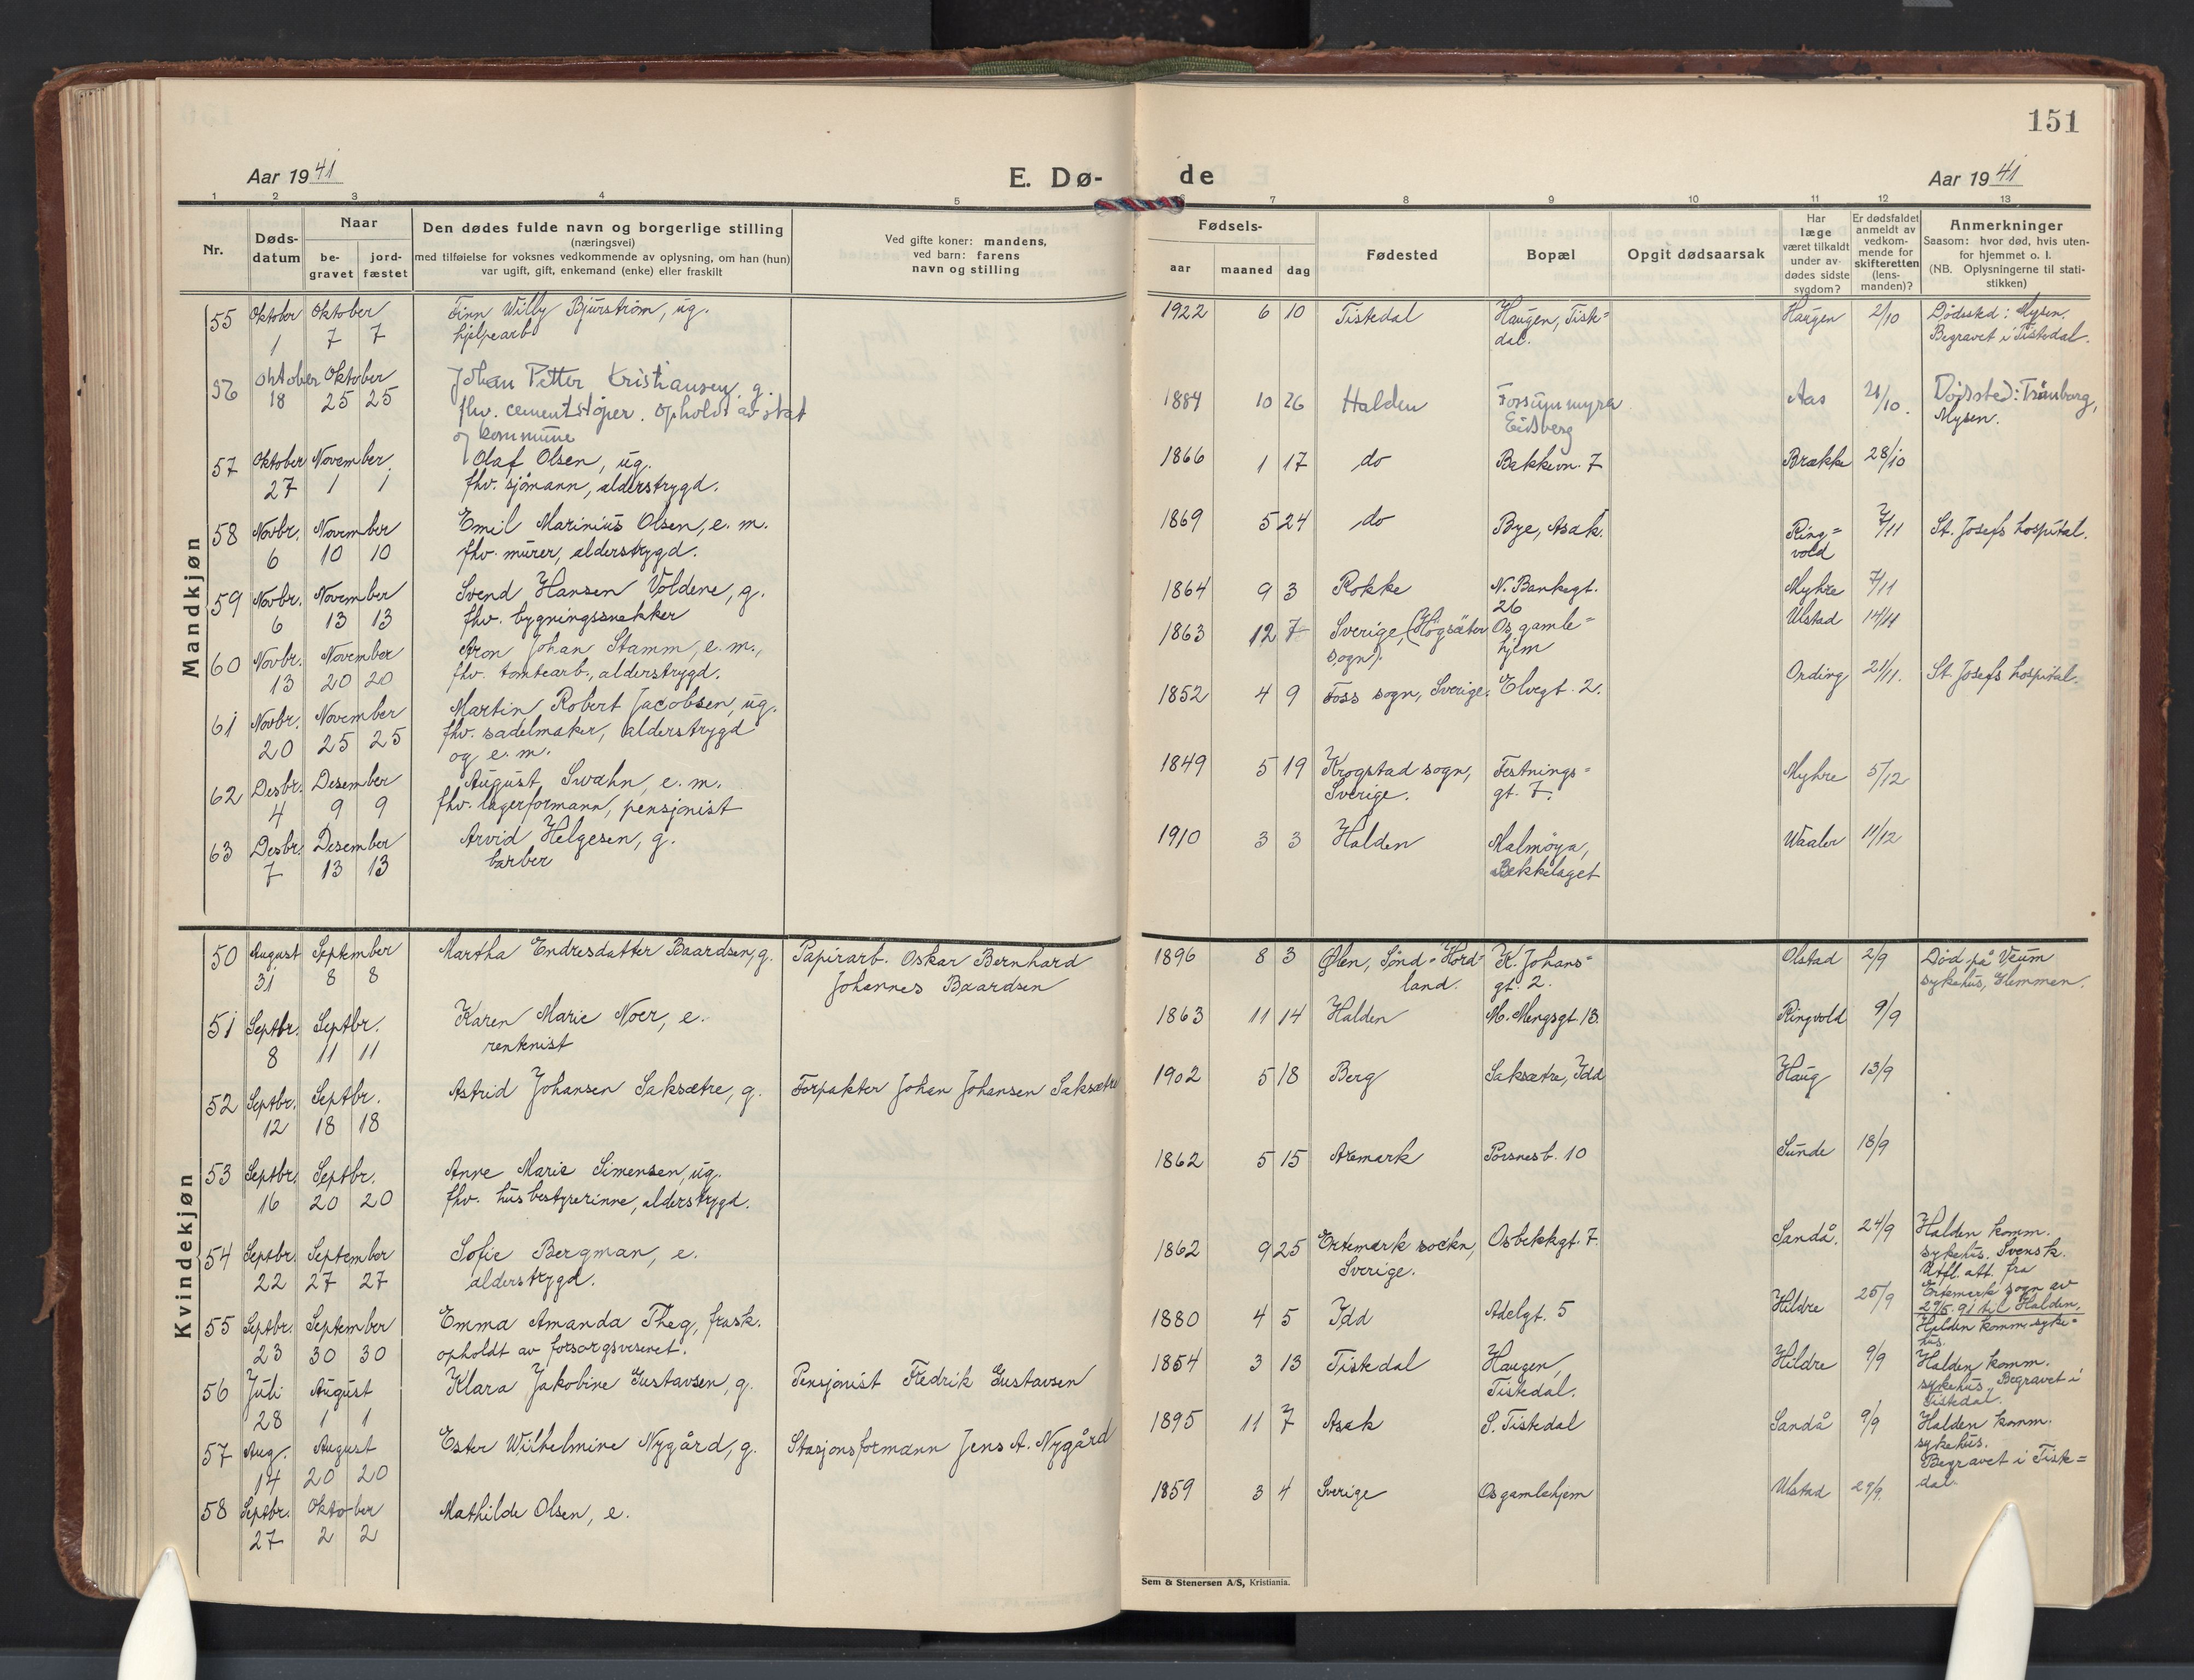 151
Aar 1941
E. Dø-
de
Aar 1941
1 2 3 4 5
6 7 8 9 10 11 12 13
Nr.
Døds-
datum
Naar
be-
gravet
jord-
fæstet
Den dødes fulde navn og borgerlige stilling
(næringsvei)
med tilføielse for voksnes vedkommende av oplysning, om han (hun)
var ugift, gift, enkemand (enke) eller fraskilt
Ved gifte koner: mandens,
ved barn: farens
navn og stilling
Fødsels-
aar maaned dag
Fødested
Bopæl
Opgit dødsaarsak
Har
læge
været tilkaldt
under av-
dødes sidste
sygdom?
Er dødsfaldet
anmeldt av
vedkom-
mende for
skifteretten
(lens-
manden)?
Anmerkninger
Saasom: hvor død, hvis uten-
for hjemmet o. l.
(NB. Oplysningerne til stati-
stikken)
Mandkjøn
55 Oktober Oktober Finn Willy Bjurström, ug. 1922 6 10 Tistedal Haugen, Tist= Haugen 2/10 Dødssted: Mysen.
1 7 7 hjelpearb dal. Begravet i Tistedal.
56 Oktober Oktober Johan Petter Kristiansen, g. 1884 10 26 Halden Forsunmyra Aas 21/10. Dødssted: Trånborg,
18 25 25 fhv. cementstøper. Opholdt av stat Eidsberg Mysen.
og kommune
57 Oktober November Olaf Olsen, ug. 1866 1 17 do Bakkevn. 7 Brække 28/10
27 1 1 fhv. sjømann, alderstrygd.
58 Novbr. November Emil Marinius Olsen, e. m. 1869 5 24 do Bye, Asak. Ring= 7/11 St. Josefs hospital.
6 10 10 fhv. murer, alderstrygd. vold
59 Novbr. November Svend Hansen Voldene, g. 1864 9 3 Rokke N. Bankegt. Myhre 7/11
6 13 13 fhv. bygningssnekker 26
60 Novbr. November Aron Johan Stamm, e. m., 1863 12 7 Sverige, (Högsäter Os gamle= Ulstad 14/11
13 20 20 fhv. tomtearb., alderstrygd. sogn). hjem
61 Novbr. November Martin Robert Jacobsen, ug. 1852 4 9 Foss sogn, Sverige. Elvegt. 2. Ording 21/11. St. Josefs hospital.
20 25 25 fhv. sadelmaker, alderstrygd
og e. m.
62 Desbr. Desember August Swahn, e. m. 1849 5 19 Krogstad sogn, Festnings= Myhre 5/12
4 9 9 fhv. lagerformann, pensjonist Sverige. gt. 7.
63 Desbr. Desember Arvid Helgesen, g. 1910 3 3 Halden Malmøya, Waaler 11/12
7 13 13 barber Bekkelaget
Kvindekjøn
50 August September Martha Endresdatter Baardsen, g. Papirarb. Oskar Bernhard 1896 8 3 Ølen, Sønd-Hord- K. Johans= Olstad 2/9 Død på Veum
31 8 8 Johannes Baardsen land. gt. 2. sykehus, Glemmen.
51 Septbr. Septbr. Karen Marie Noer, e. 1863 11 14 Halden M. Mengsgt. 13. Ringvold 9/9
8 11 11 rentenist
52 Septbr. Septbr. Astrid Johansen Saksætre, g. Forpakter Johan Johansen Saksætre 1902 5 18 Berg Saksætre, Idd Haug 13/9
12 18 18
53 Septbr. Septbr. Anne Marie Simensen, ug. 1862 5 15 Aremark Porsnesb. 10 Sunde 18/9
16 20 20 fhv. husbestyrerinne, alderstrygd.
54 Septbr. September Sofie Bergman, e. 1862 9 25 Ertemark sockn, Osbekkgt. 7. Sandå. 24/9 Halden komm.
22 27 27 alderstrygd. Sverige. sykehus. Svensk.
Utfl. att. fra
Ertemark sogn av
29/5-91 til Halden.
55 Septbr. September Emma Amanda Theg, frask. 1880 4 5 Idd Adelgt. 5 Hildre 25/9 Halden komm. syke=
23 30 30 opholdt av forsorgsvesenet. hus.
56 Juli August Klara Jakobine Gustavsen, g. Pensjonist Fredrik Gustavsen 1854 3 13 Tistedal Haugen, Hildre 9/9 Halden komm.
28 1 1 Tistedal. sykehus. Begravet i
Tistedal.
57 Aug. August Ester Wilhelmine Nygård, g. Stasjonsformann Jens A. Nygård 1895 11 7 Asak S. Tistedal Sandå 9/9 Halden komm.
14 20 20 sykehus.
Begravet i Tist=
dal.
58 Septbr. Oktober Mathilde Olsen, e. 1859 3 4 Sverige Os gamlehjem Ulstad 29/9.
27 2 2
Sem & Stenersen A/S, Kristiania.